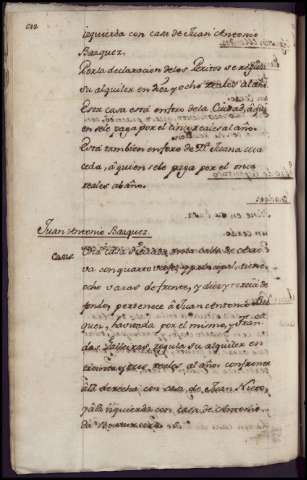 izquierda con casa de Juan Antonio
Bazquez.
Por la declaracion de los Peritos se regula
su alquiler en diez y ocho reales al año.
Esta casa está en foro de la Ciudad, à quien
se le paga por el cinco reales al año.
Está tambien en foro de Dª Juana
ceda, à quien se le paga por el once
reales al año.
Juan Antonio Bazquez.
Casa
Una casa
va con quarto vajo, y principal, tiene
ocho varas de frente, y diez y seis de
fondo, pertenece à Juan Antonio Baz
quez, havitada por el mismo, y
regula su alquiler en
treinta y tres reales al año. confronta
à la derecha con casa de Juan Nieto,
y à la izquierda con casa de Antonio
da